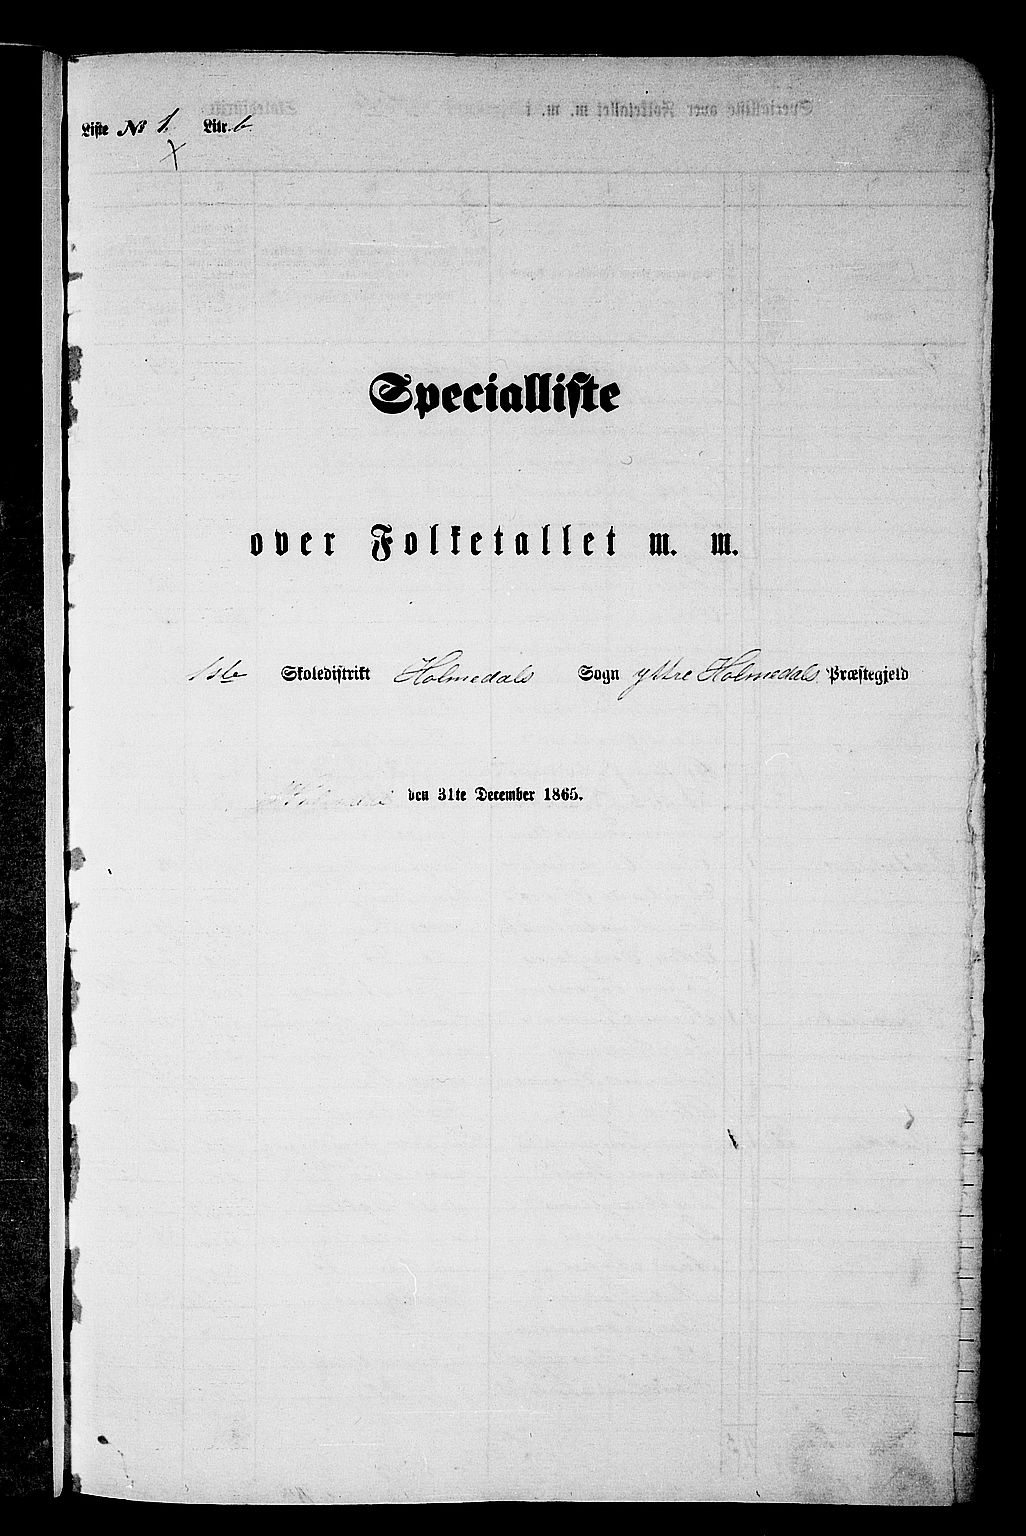 Liste No 1. Litr. b
Specialliste
over Folketallet m. m.
1ste Skoledistrikt Holmedals Sogn yttre Holmedals Præstegjeld
den 31te December 1865.